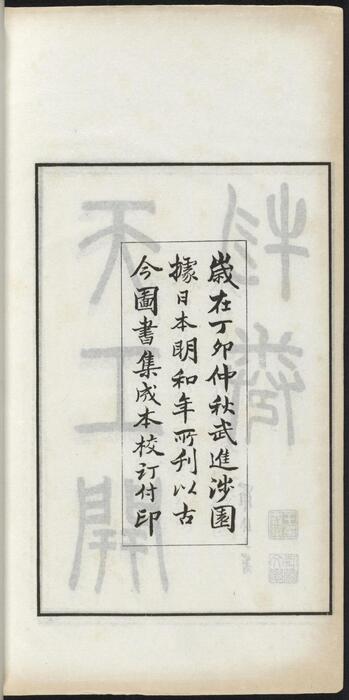 歲在丁卯仲秋武進涉園
據日本明和年所刊以古
今圖書集成本校訂付印